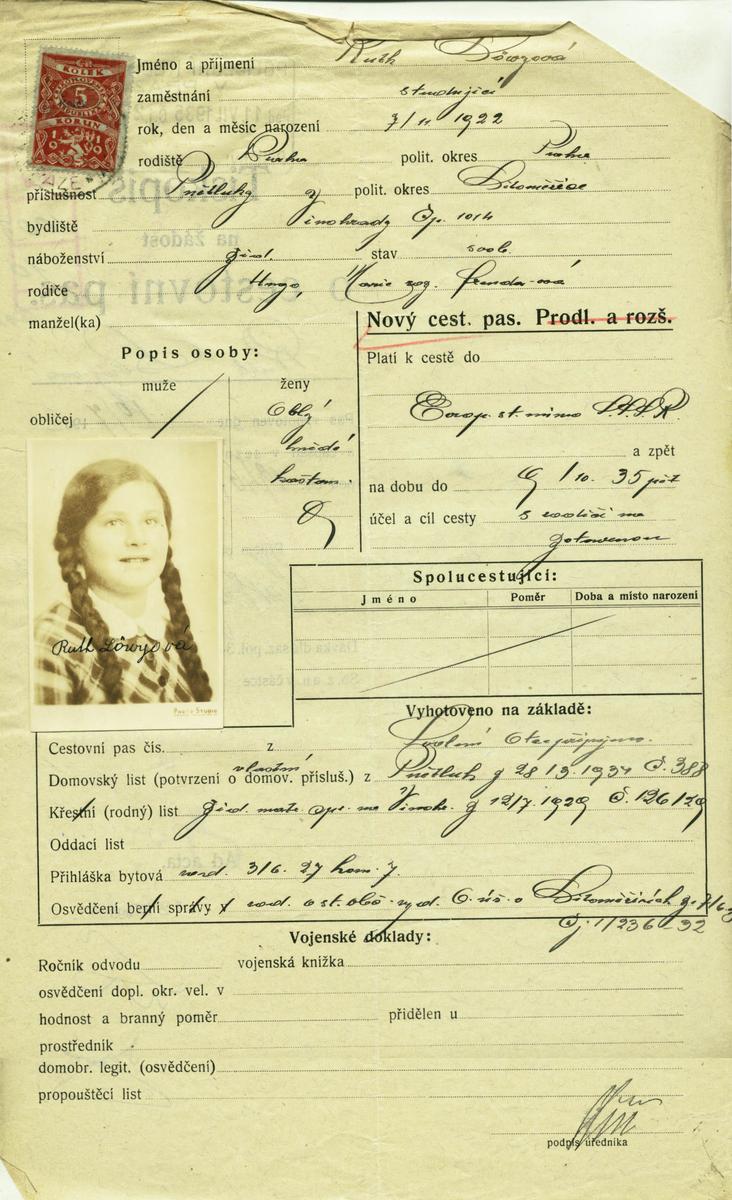 KOLEK
5
KORUN
1919
Jméno a příjmení Ruth Löwyová
zaměstnání studující
rok, den a měsíc narození 7/11 1922
rodiště Praha polit. okres Praha
příslušnost Pnětluky polit. okres Litoměřice
bydliště Vinohrady čp. 1014
náboženství žid. stav svob.
rodiče Hugo, Marie roz.
manžel(ka)
Nový cest. pas. Prodl. a rozš.
Popis osoby:
Platí k cestě do
muže ženy
obličej oblý
Europ. st. mimo S.S.S.R.
hnědé
a zpět
kaštan.
na dobu do 9/10. 35
účel a cíl cesty s rodiči na
Spolucestující:
Jméno Poměr Doba a místo narození
Ruth Löwyová
Photo Studio
Vyhotoveno na základě:
Cestovní pas čís. z
vlastní
Domovský list (potvrzení o domov. přísluš.) z Pnětluk z 28/3. 1934 č. 388
Křestní (rodný) list žid. matr. v Vinohr. z 12/7. 1929 č. 126/29
Oddací list
Přihláška bytová 3/6. 27 kom. 7.
Osvědčení berní správy o st. obč. vyd. v Litoměřicích z 7/6.
čj. 11236-32
Vojenské doklady:
Ročník odvodu vojenská knížka
osvědčení dopl. okr. vel. v
hodnost a branný poměr přidělen u
prostředník
domobr. legit. (osvědčení)
propouštěcí list
podpis úředníka